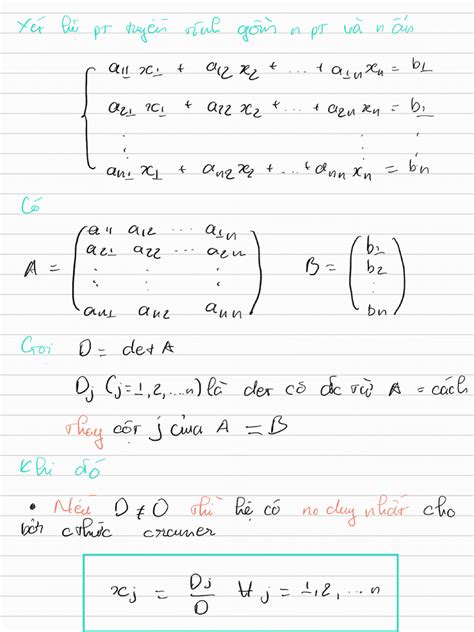 Xét hệ pt tuyến tính gồm n pt và n ẩn
a11 x1 + a12 x2 + ... + a1n xn = b1
a21 x1 + a22 x2 + ... + a2n xn = b2
⋮ ⋮ ⋮
an1 x1 + an2 x2 + ... + ann xn = bn
Có
A = (a11 a12 ... a1n
a21 a22 ... a2n
⋮ ⋮ ⋮
an1 an2 ann)
B = (b1
b2
⋮
bn)
Gọi D = det A
Dj (j=1,2,...n) là det có đc từ A = cách
thay cột j của A = B
Khi đó
• Nếu D ≠ 0 thì hệ có no duy nhất cho
bởi cthức cramer
xj = Dj/D ∀ j = 1,2, ... n